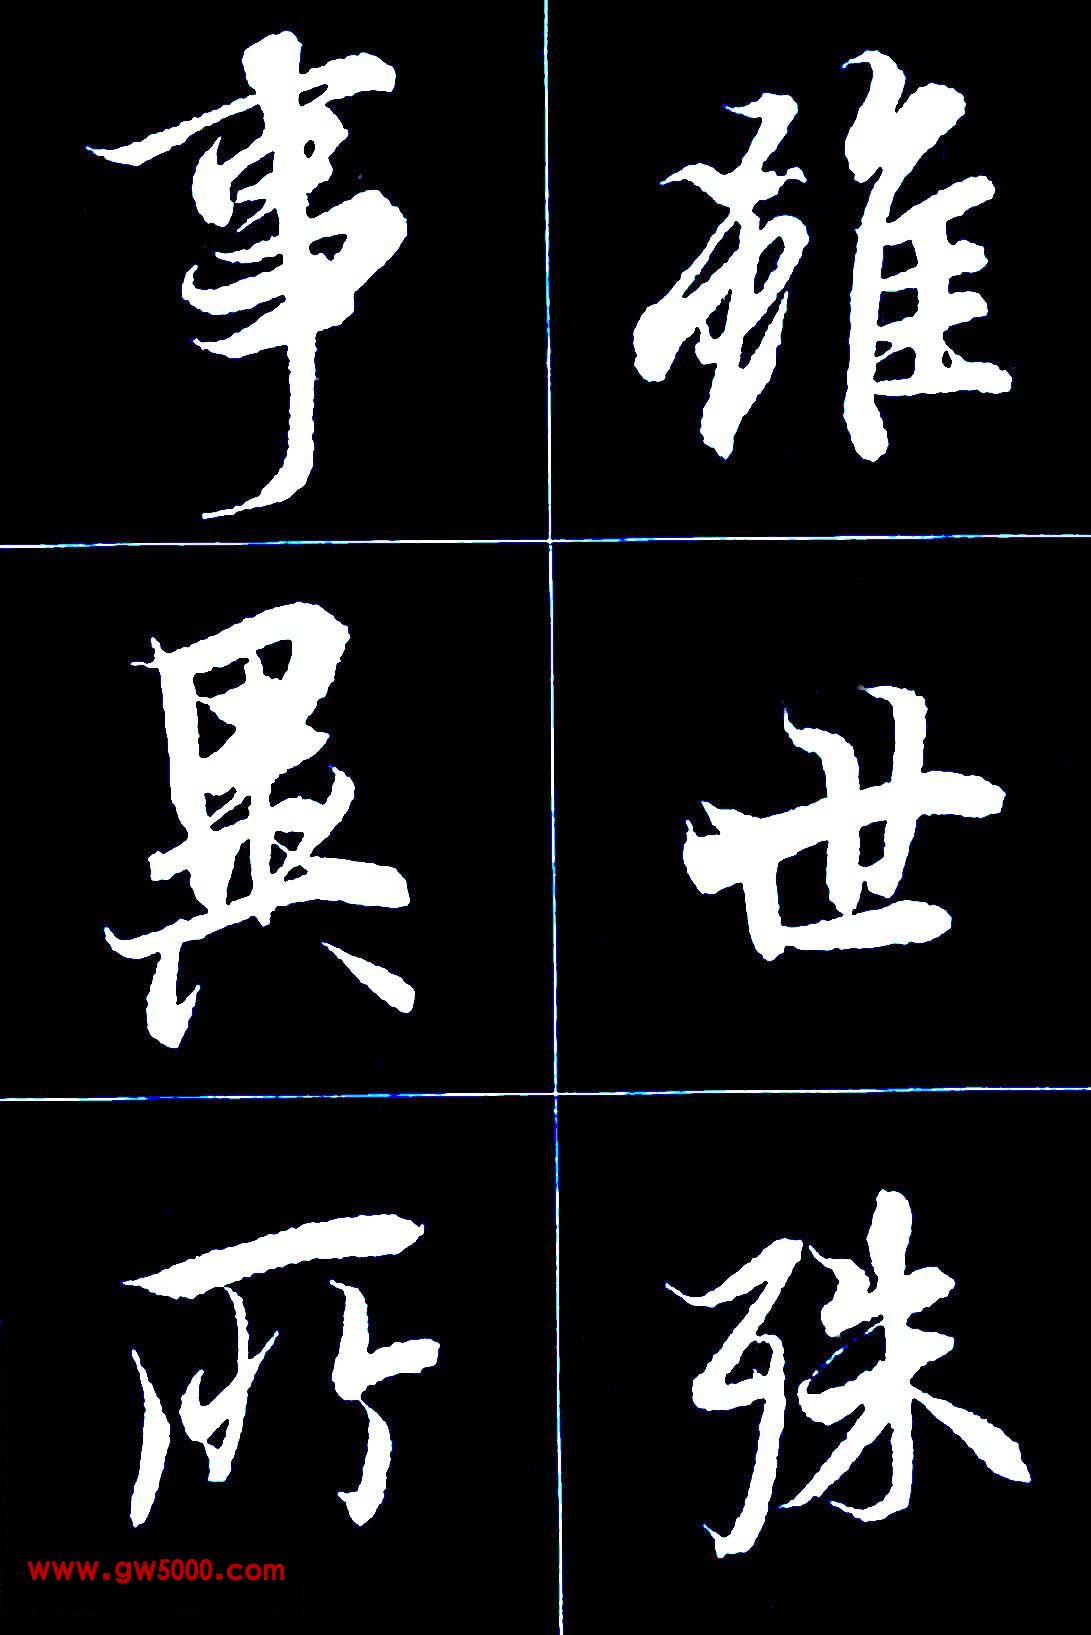 雖世殊
事異所
www.gw5000.com